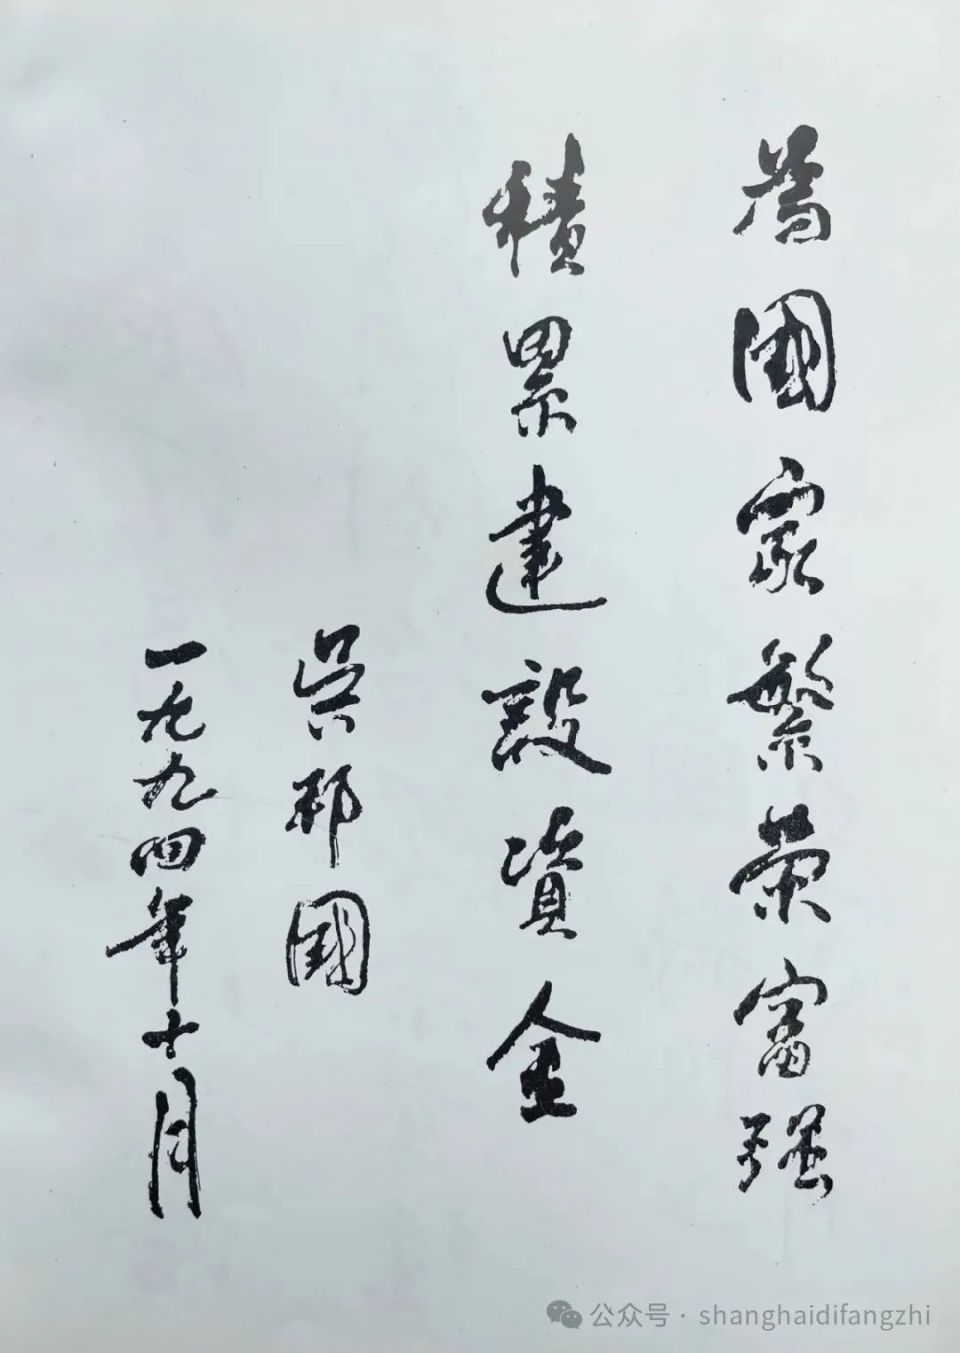 為國家繁荣富强
積累建設資金
吳邦國
一九九四年十月
公众号·shanghaidifangzhi